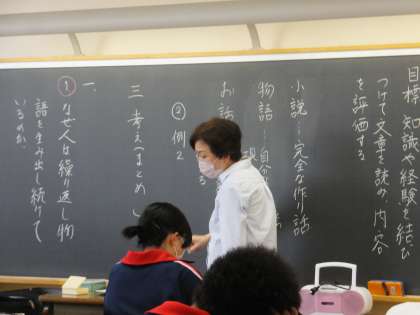 目標 知識や経験を結び
つけて文章を読み、内容
を評価する
小説…完全な作り話
物語…自
お話
②例2
三 考え(まとめ)
一、
①なぜ人は繰り返し物
語を生み出し続けて
いるのか。